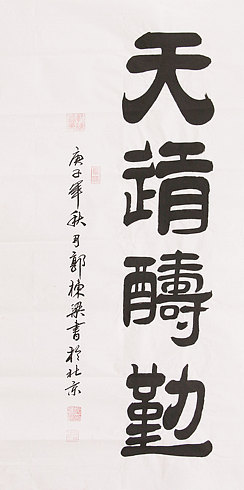 天道酬勤
庚子年秋月郭栋梁書於北京